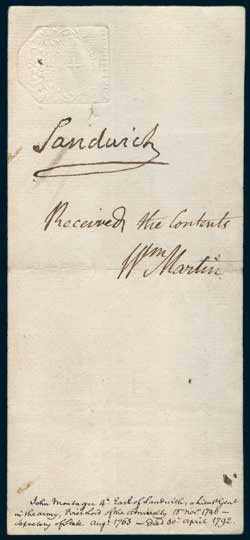 Sandwich
Received the Contents
Wm Martin
John Montagu 4th Earl of Sandwich, a Lieut Genl
in the army, First Lord of the Admiralty Novr
Secretary of State Augt 1763 — Died 30th April 1792.